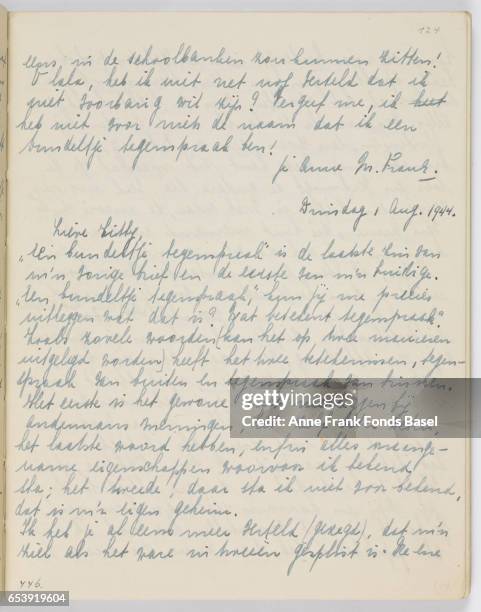 124
weer, in de schoolbanken zou kunnen zitten!
O lala, heb ik niet net nog verteld dat ik
niet voorbarig wil zijn? Vergeef me, ik heet
heb niet voor niets de naam dat ik een
bundeltje tegenspraak ben!
je Anne M. Frank.
Dinsdag 1 Aug. 1944.
Lieve Kitty,
„Een bundeltje tegenspraak" is de laatste zin van
m'n vorige brief en de eerste van m'n huidige.
„Een bundeltje tegenspraak", kun jij me precies
uitleggen wat dat is? Wat betekent tegenspraak?
Zoals zovele woorden (kan het op twee manieren
uitgelegd worden) heeft het twee betekenissen, tegen-
spraak van buiten en tegenspraak van binnen.
Het eerste is het gewone
andermans meningen,
het laatste woord hebben, enfin alles onange-
name eigenschappen waarvoor ik bekend
sta; het tweede, daar sta ik niet voor bekend,
dat is m'n eigen geheim.
Ik heb je al eens meer verteld (gezegd), dat m'n
ziel als het ware in tweeën gesplitst is. De ene
446.
gettyimages
Credit: Anne Frank Fonds Basel
653919604